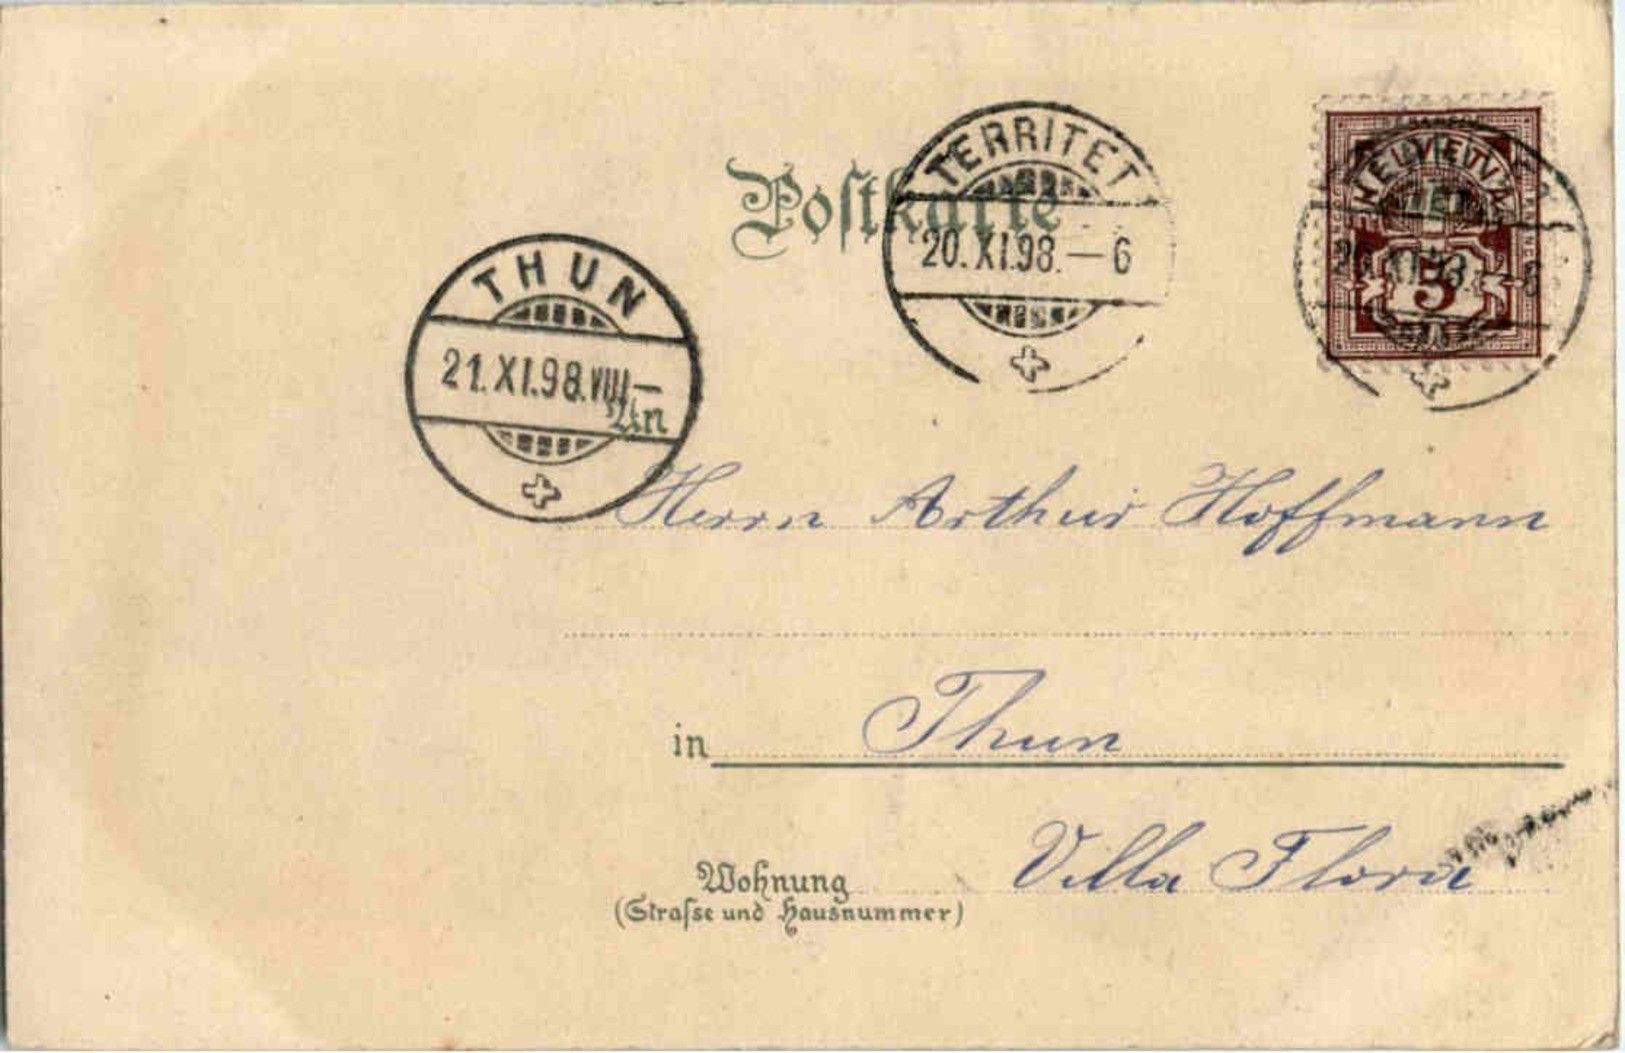 Postkarte
TERRITET
20.XI.98.—6
HELVETIA
5
THUN
21.XI.98.VIII—
An
Herrn Arthur Hoffmann
in Thun
Villa Flora
Wohnung
(Straſse und Hausnummer)